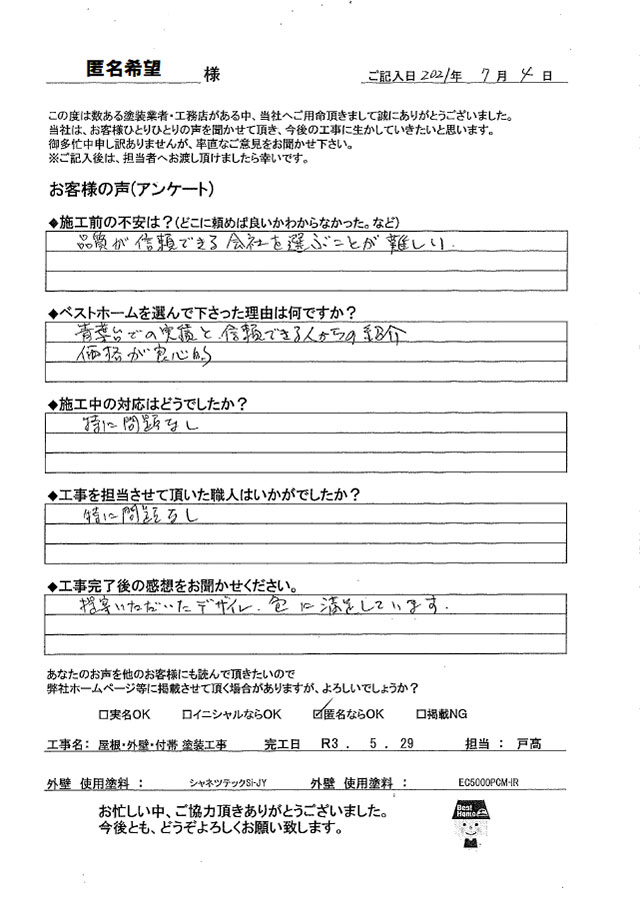 匿名希望 様
ご記入日 2021年 7月 4日
この度は数ある塗装業者・工務店がある中、当社へご用命頂きまして誠にありがとうございました。
当社は、お客様ひとりひとりの声を聞かせて頂き、今後の工事に生かしていきたいと思います。
御多忙中申し訳ありませんが、率直なご意見をお聞かせ下さい。
※ご記入後は、担当者へお渡し頂けましたら幸いです。
お客様の声(アンケート)
◆施工前の不安は?(どこに頼めば良いかわからなかった。など)
品質が信頼できる会社を選ぶことが難しい.
◆ベストホームを選んで下さった理由は何ですか?
青葉台での実績と、信頼できる人からの紹介
価格が良心的
◆施工中の対応はどうでしたか?
特に問題なし
◆工事を担当させて頂いた職人はいかがでしたか?
特に問題なし
◆工事完了後の感想をお聞かせください。
提案いただいたデザイン、色に満足しています.
あなたのお声を他のお客様にも読んで頂きたいので
弊社ホームページ等に掲載させて頂く場合がありますが、よろしいでしょうか?
□実名OK □イニシャルならOK ☑匿名ならOK □掲載NG
工事名: 屋根・外壁・付帯 塗装工事 完工日 R3 . 5 . 29 担当 : 戸高
外壁 使用塗料 : シャネツテックSi-JY 外壁 使用塗料 : EC5000PCM-IR
お忙しい中、ご協力頂きありがとうございました。
今後とも、どうぞよろしくお願い致します。
Best
Home